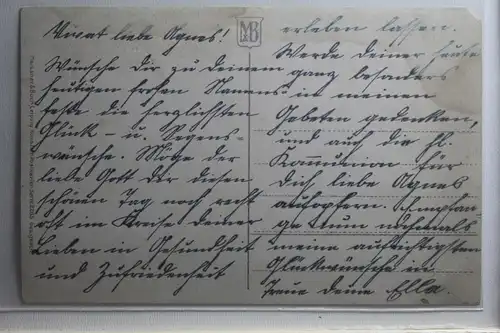 Vivat liebe Agnes!
Wünsche Dir zu deinem
heutigen frohen Namens-
feste die herzlichsten
Glück - u. Segens-
wünsche. Möge der
liebe Gott Dir diesen
schönen Tag noch recht
oft im Kreise deiner
Lieben in Gesundheit
und Zufriedenheit
MB
erleben lassen.
Werde deiner heute
ganz besonders
in meinen
Gebeten gedenken,
und auch die hl.
Kommunion für
Dich liebe Agnes
aufopfern. Empfan-
ge nochmals
meine aufrichtigsten
Glückwünsche in
Treue deine Ella.